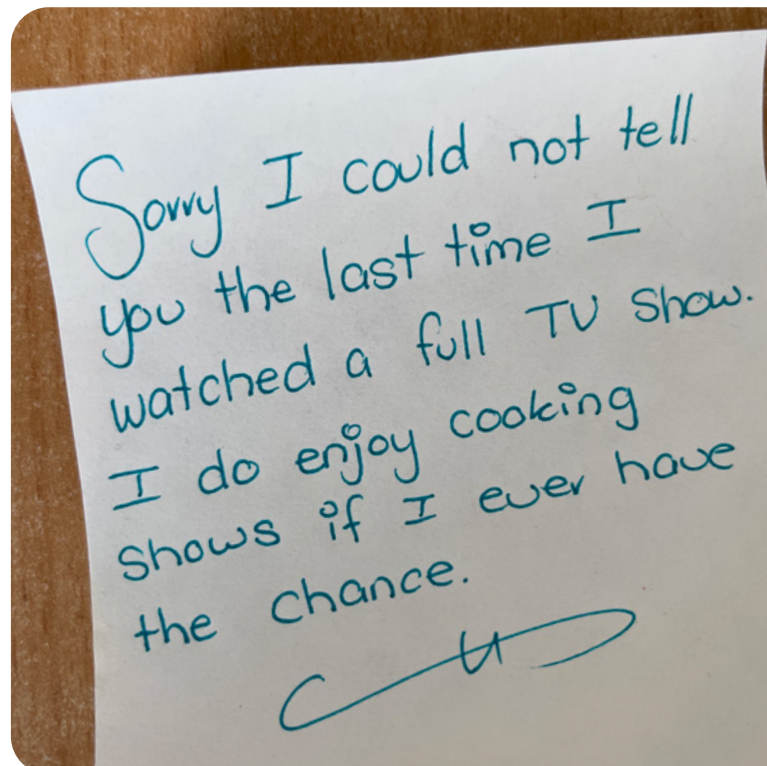 Sorry I could not tell
you the last time I
watched a full TV show.
I do enjoy cooking
shows if I ever have
the chance.